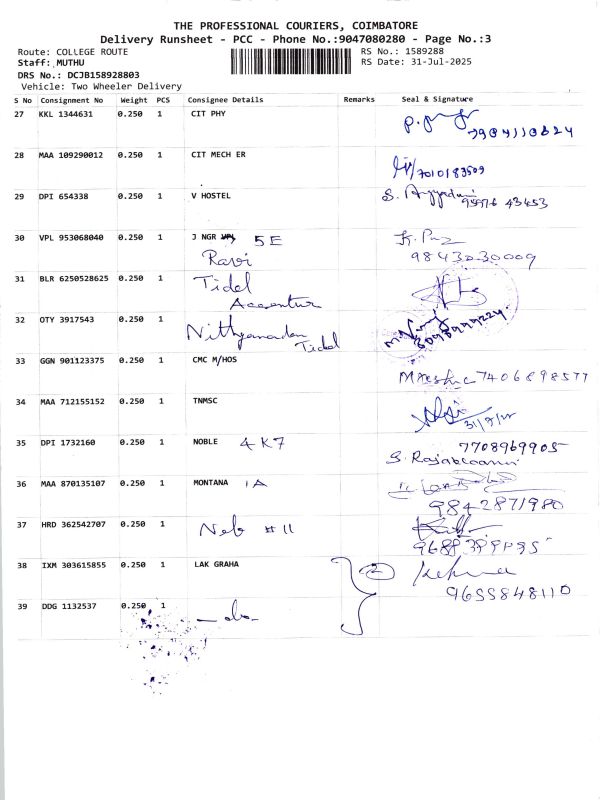 THE PROFESSIONAL COURIERS, COIMBATORE
Delivery Runsheet - PCC - Phone No.:9047080280 - Page No.:3
Route: COLLEGE ROUTE RS No.: 1589288
Staff: MUTHU RS Date: 31-Jul-2025
DRS No.: DCJB158928803
Vehicle: Two Wheeler Delivery
S No Consignment No Weight PCS Consignee Details Remarks Seal & Signature
27 KKL 1344631 0.250 1 CIT PHY
28 MAA 109290012 0.250 1 CIT MECH ER 7010183509
29 DPI 654338 0.250 1 V HOSTEL 95976 43453
30 VPL 953068040 0.250 1 J NGR 5E
Ravi 9843030009
31 BLR 6250528625 0.250 1 Tidel
Accentur
32 OTY 3917543 0.250 1 Nithyanandan
Tidel
33 GGN 901123375 0.250 1 CMC M/HOS
7406898577
34 MAA 712155152 0.250 1 TNMSC
35 DPI 1732160 0.250 1 NOBLE 4K7 7708969905
36 MAA 870135107 0.250 1 MONTANA 1A
9842871980
37 HRD 362542707 0.250 1 Neb #11
38 IXM 303615855 0.250 1 LAK GRAHA 2
9655848110
39 DDG 1132537 0.250 1 -do-